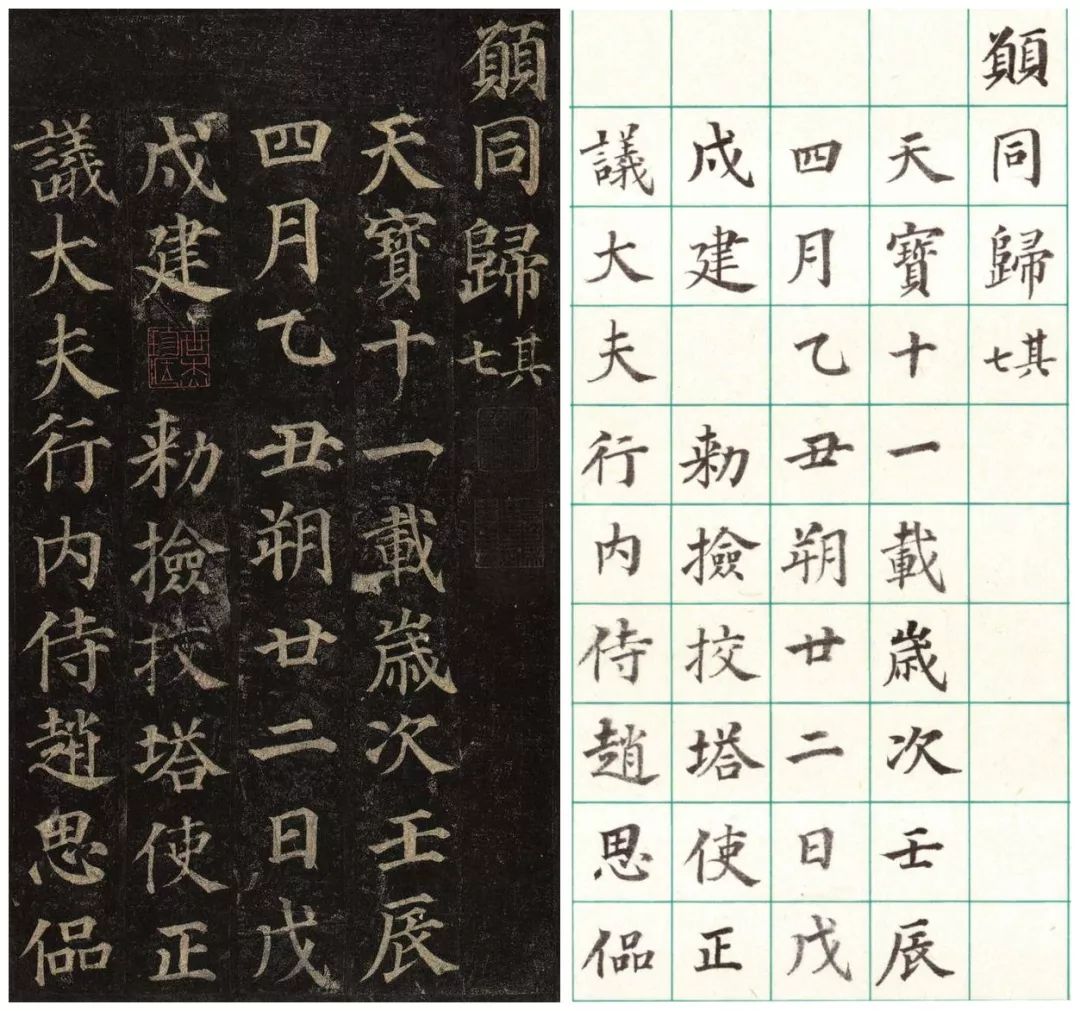 願同歸其七
天寶十一載歲次壬辰
四月乙丑朔廿二日戊
戌建 勑撿挍塔使正
議大夫行内侍趙思侃
願同歸其七
天寶十一載歲次壬辰
四月乙丑朔廿二日戊
戌建 勑撿挍塔使正
議大夫行内侍趙思侃